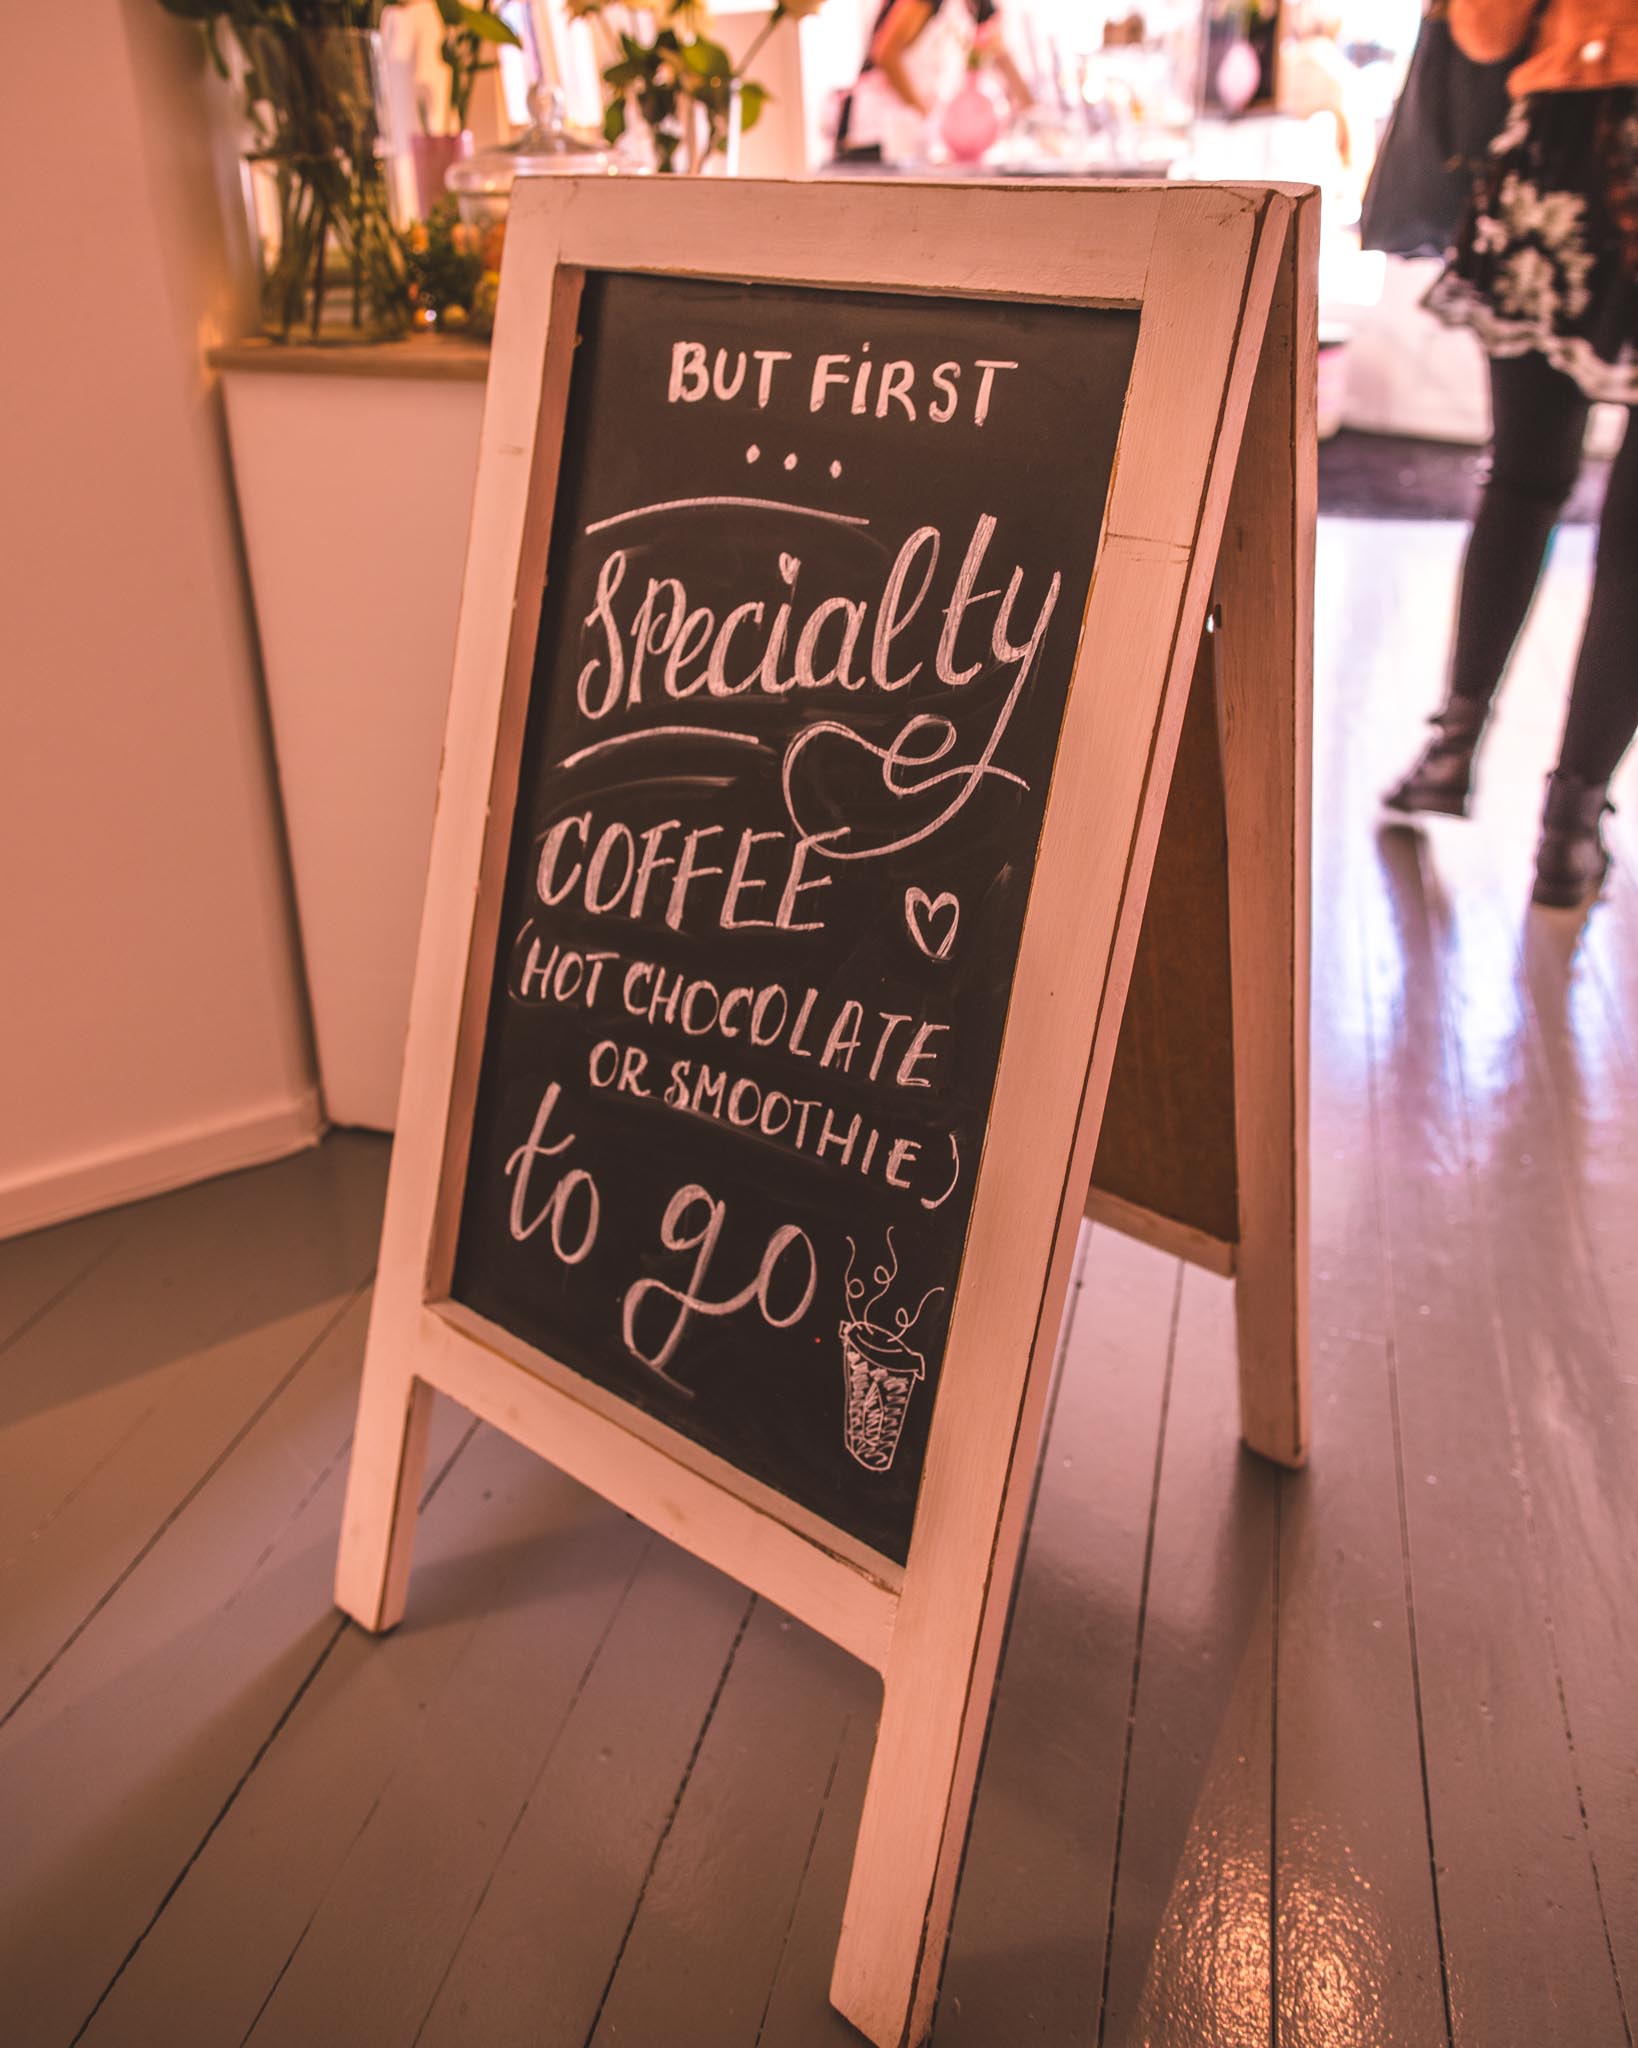 BUT FIRST
...
Specialty
COFFEE
(HOT CHOCOLATE
OR SMOOTHIE)
to go